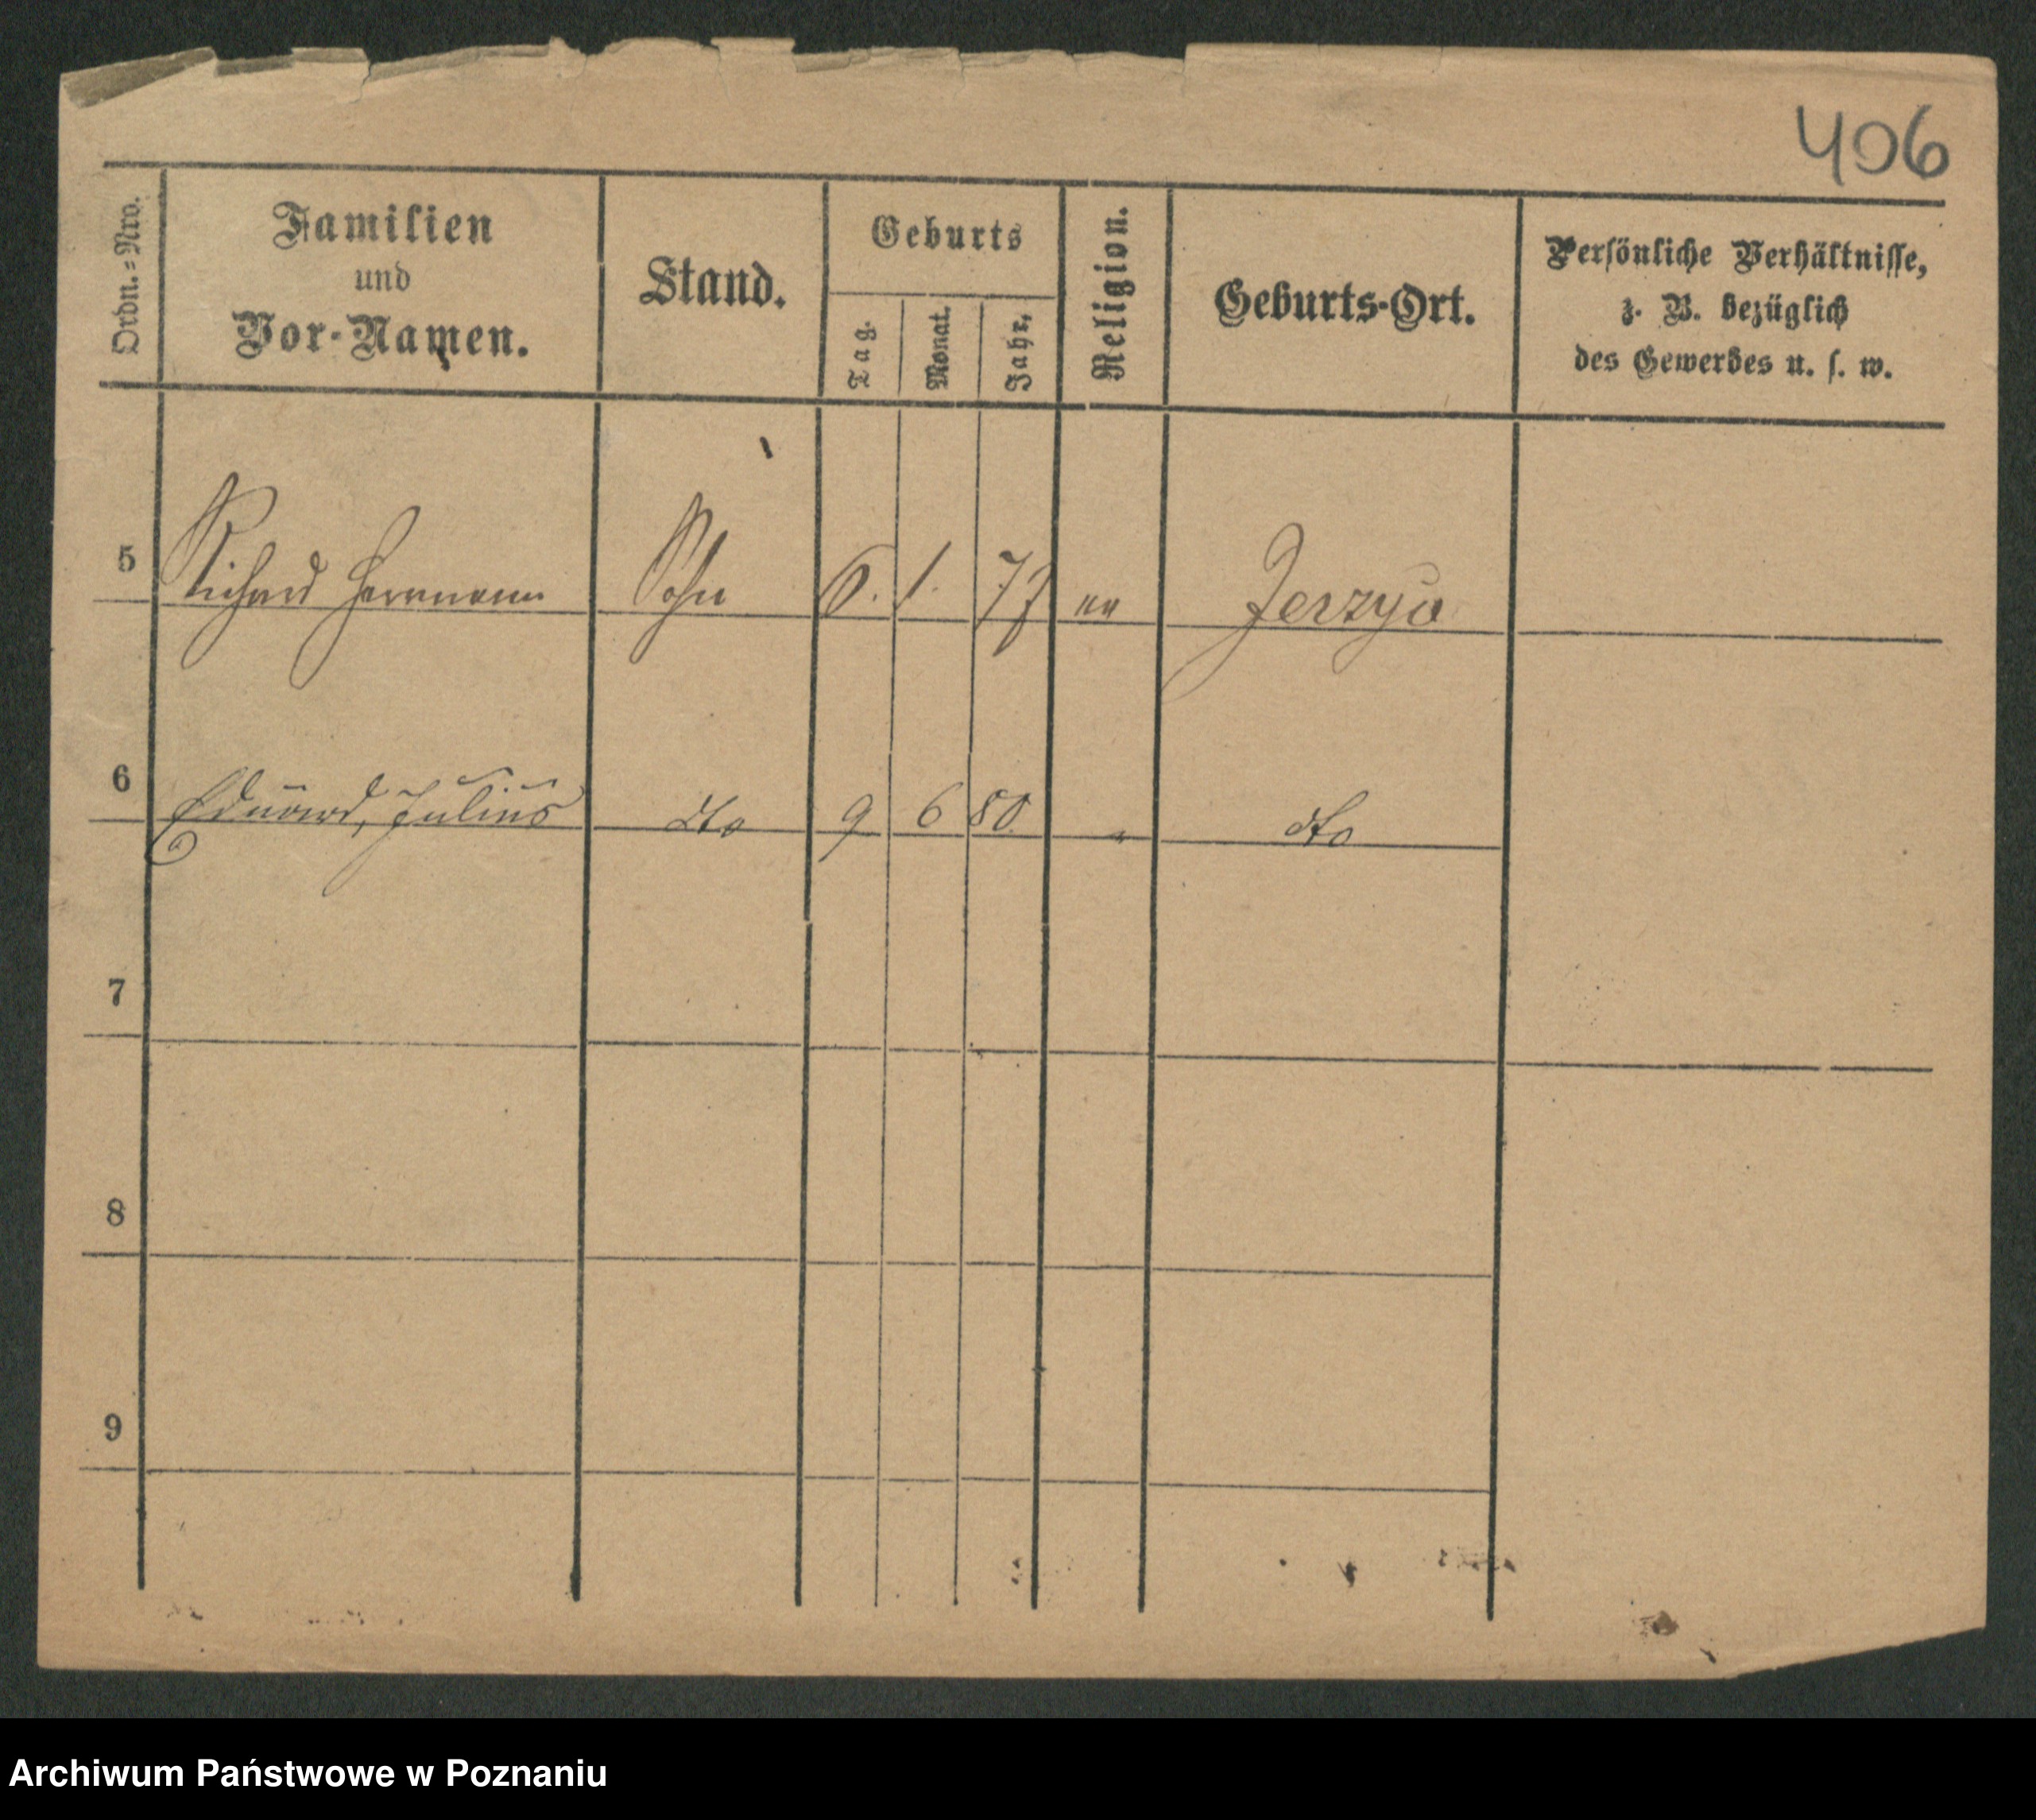 406
Ordn.=Nro.
Familien
und
Vor-Namen.
Stand.
Geburts
Tag.
Monat.
Jahr.
Religion.
Geburts-Ort.
Persönliche Verhältnisse,
z. B. bezüglich
des Gewerbes u. s. w.
5 Richard Herrmann Sohn 6. 1. Jerzyce
6 Eduard, Julius dto 9 6 80 " dto
7
8
9
Archiwum Państwowe w Poznaniu